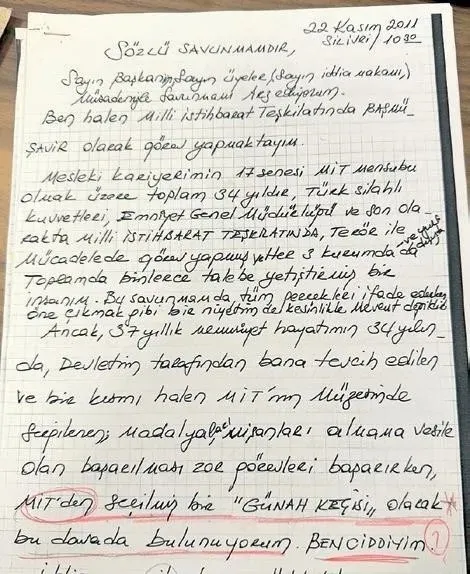 22 Kasım 2011
Silivri / 10 30
SÖZLÜ SAVUNMAMDIR,
Sayın Başkanım, Sayın üyeler, (Sayın iddia makamı,)
Müsadenizle Savunmamı Arz ediyorum.
Ben halen Milli istihbarat Teşkilatında BAŞMÜ-
ŞAVİR olarak görev yapmaktayım.
Mesleki kariyerimin 17 senesi MİT Mensubu
olmak üzere toplam 34 yıldır, Türk silahlı
kuvvetleri, Emniyet Genel Müdürlüğü ve son ola-
rakta Milli İSTİHBARAT TEŞKİLATINDA, Terör ile
Mücadelede görev yapmış ve her 3 kurumda da
Toplamda binlerce talebe yetiştirmiş bir
insanım. Bu savunmamda, tüm gerçekleri ifade ederken
öne çıkmak gibi bir niyetim de kesinlikle mevcut değildir
Ancak, 37 yıllık memuriyet hayatımın 34 yılın-
da, Devletim tarafından bana tevcih edilen
ve bir kısmı halen MİT'nın Müzesinde
Sergilenen; Madalya ve nişanları almama vesile
olan başarılması zor görevleri başarırken,
MİT'den Seçilmiş bir "GÜNAH KEÇİSİ" olarak
bu davada bulunuyorum. BEN CİDDİYİM. ?